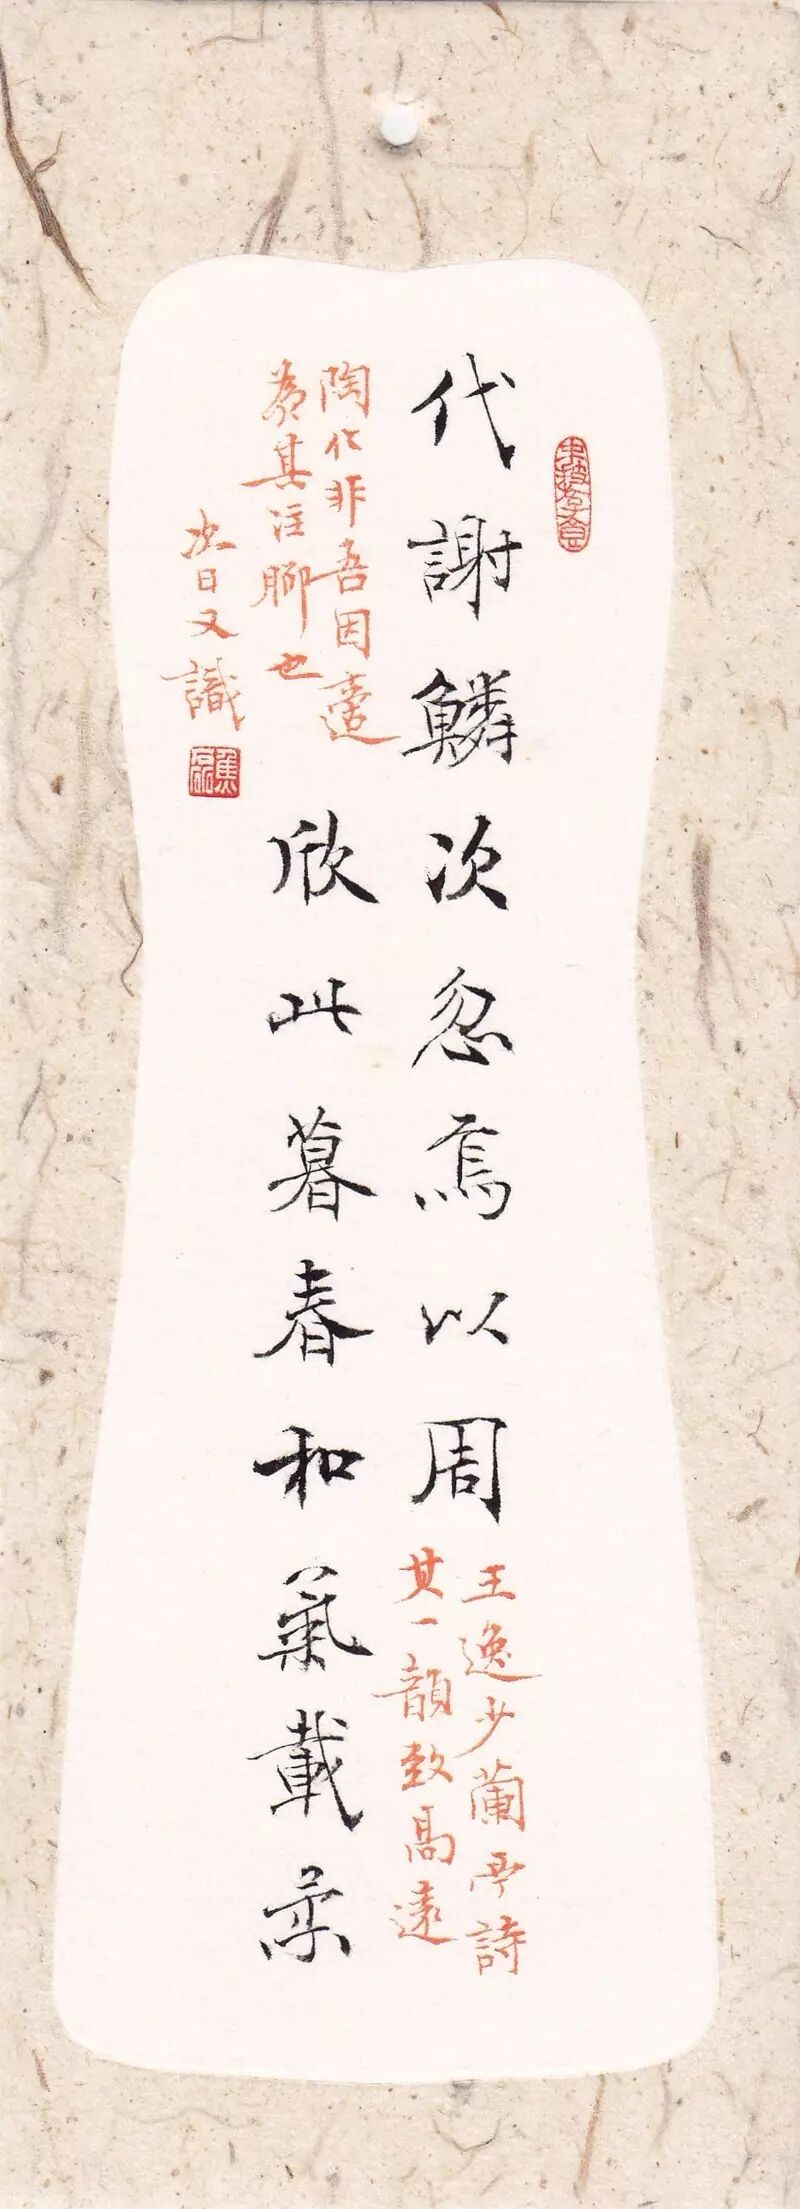 代謝鱗次忽焉以周
王逸少蘭亭詩
其一韻致高遠
陶化非吾因適
為其注腳也
欣此暮春和氣載柔
次日又識
焦磊